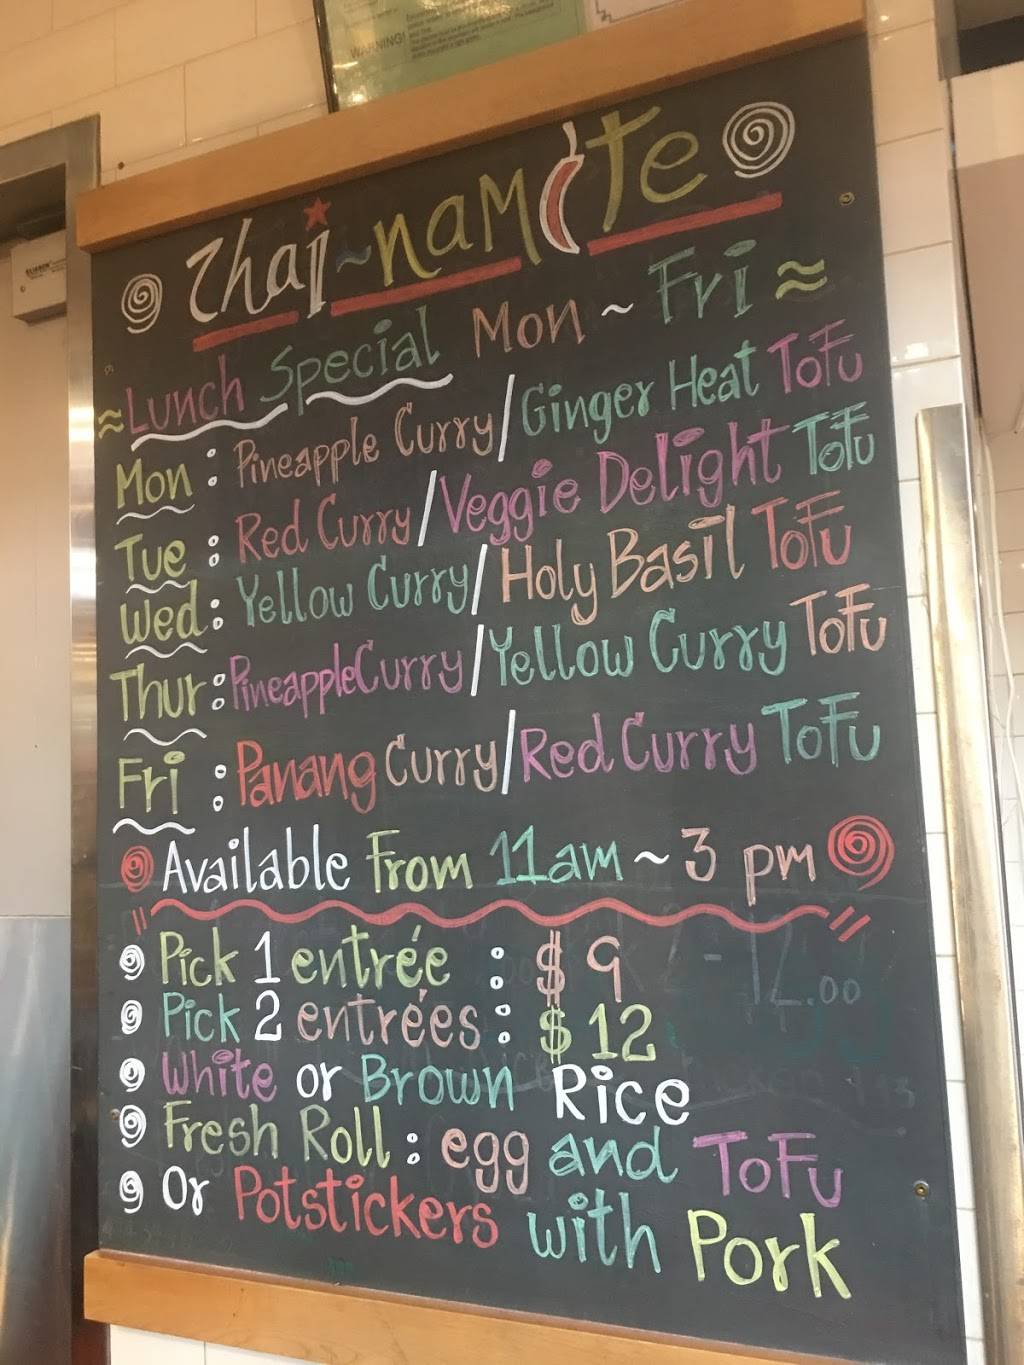 WARNING!
Thai~namite
≈Lunch Special Mon ~ Fri ≈
Mon : Pineapple Curry/Ginger Heat ToFu
Tue : Red Curry/Veggie Delight ToFu
Wed: Yellow Curry/Holy Basil ToFu
Thur: Pineapple Curry/Yellow Curry ToFu
Fri : Panang Curry/Red Curry ToFu
Available From 11am ~ 3 pm
Pick 1 entrée : $9
Pick 2 entrées : $12
White or Brown Rice
Fresh Roll : egg and ToFu
Or Potstickers with Pork